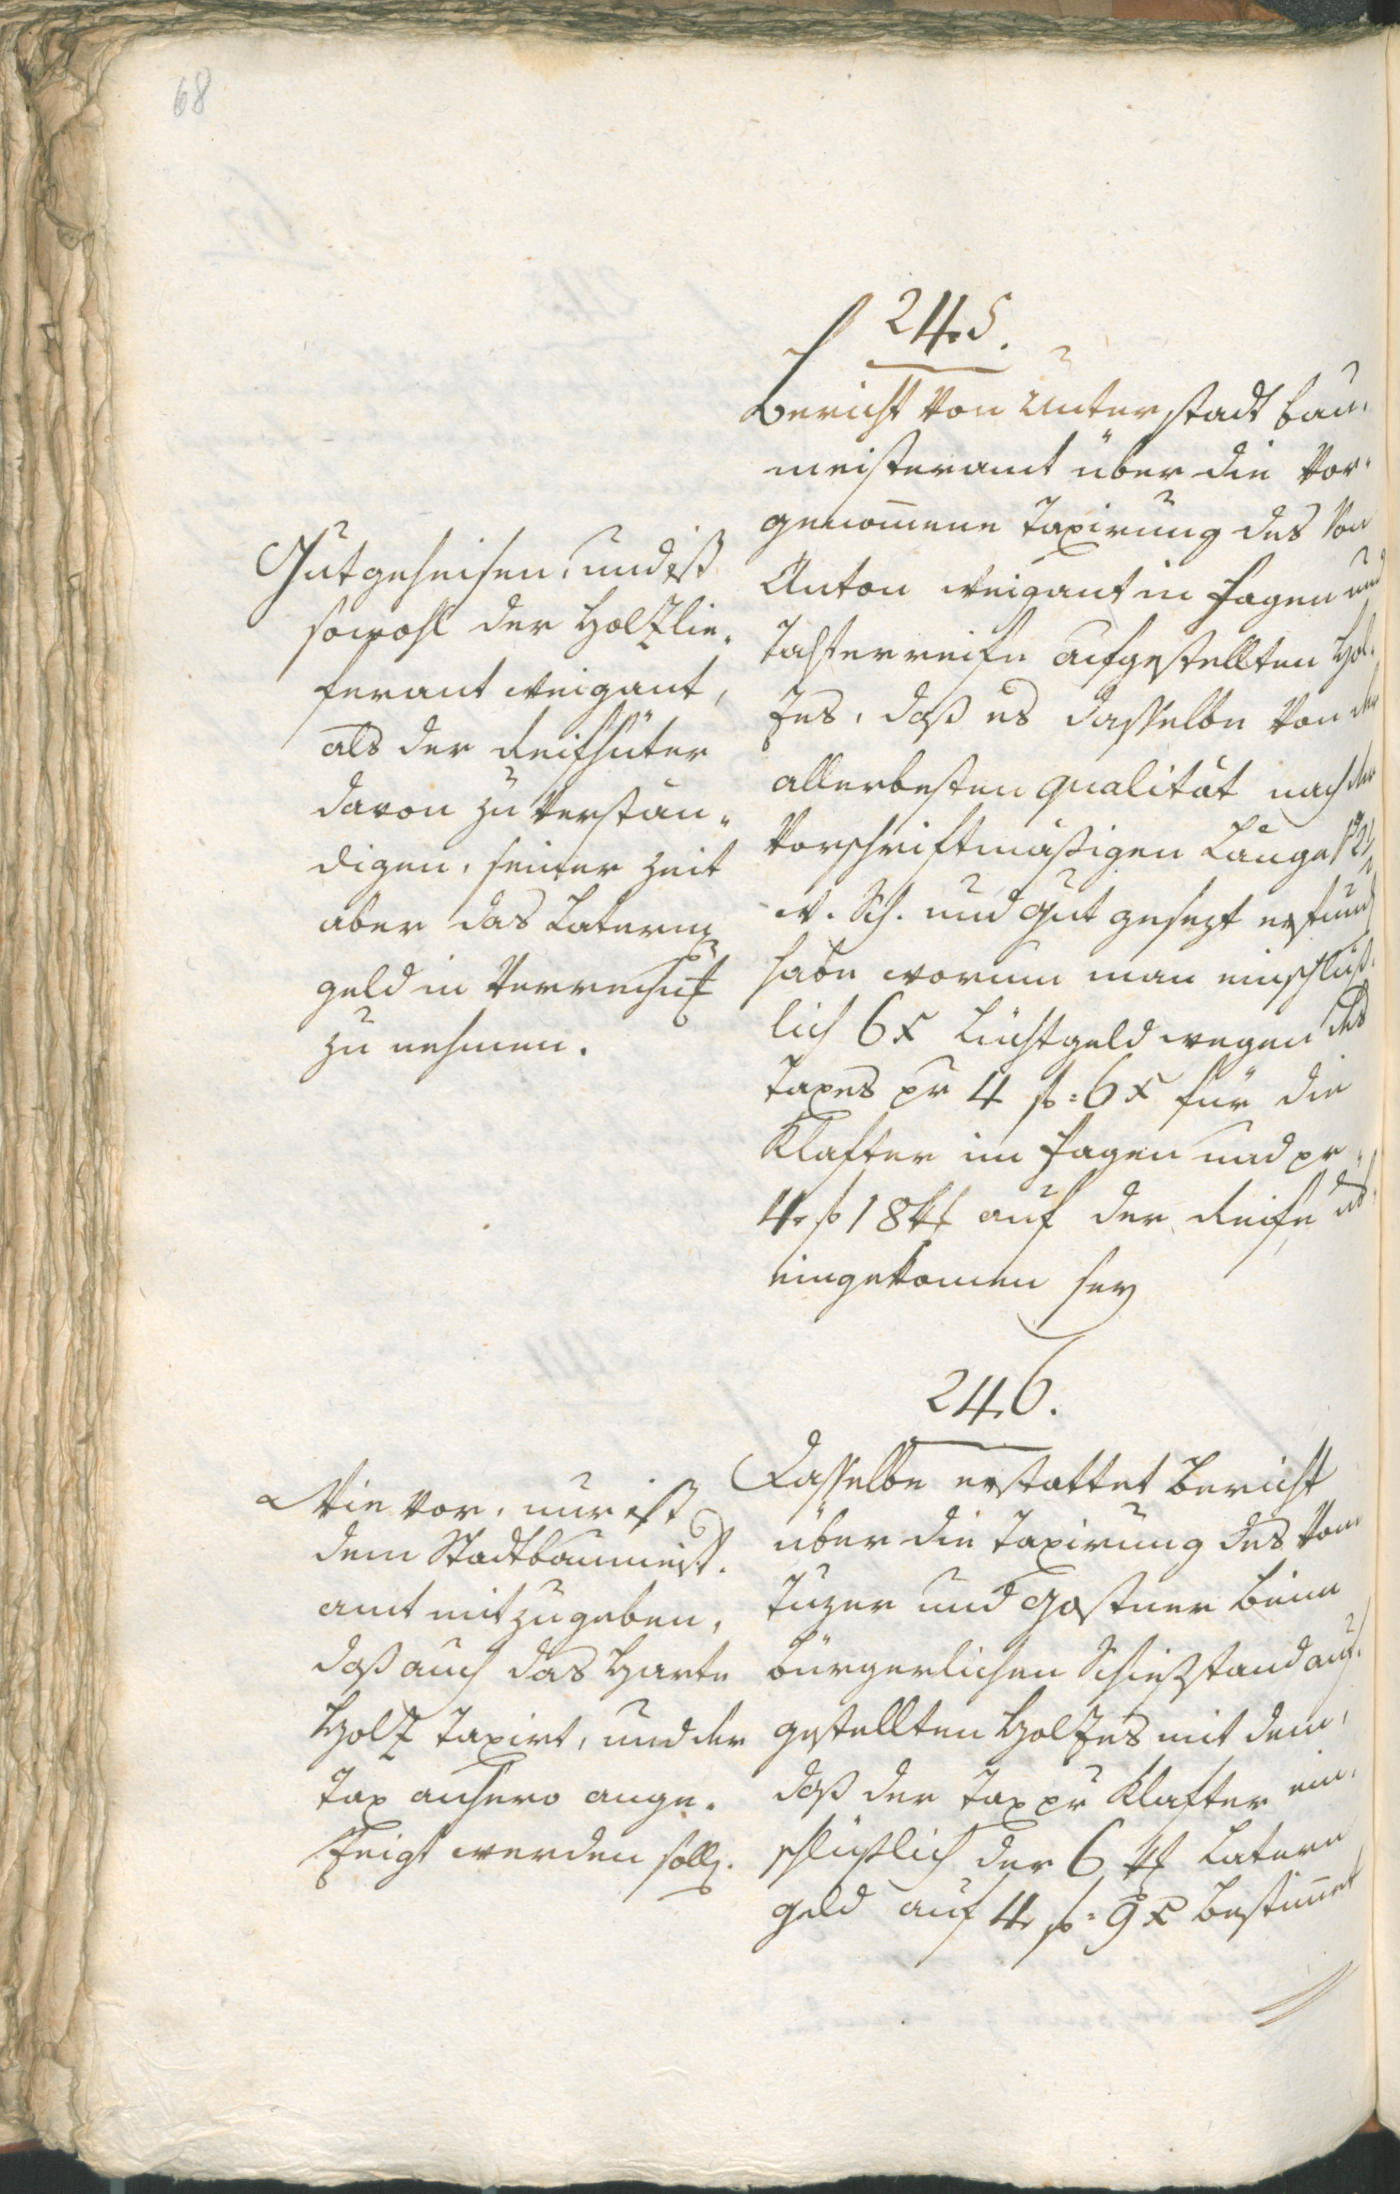 68
245.
Bericht von Unterstadt bau„
meisteramt über die vor„
genom̄ene Taxirung des von
Anton Weigant in Hagen und
Talferreife aufgestellten Hol„
zes, daß es dasselbe von der
allerbesten qualität nach der
Vorschriftmäßigen Länge
W. Sch. und gut gesezt erfund
habe worum man einschlüß„
lich 6 x Lichtgeld wegen des
Taxes pr 4 f: 6 x für die
Klafter im Hagen und pr
4 f 18 xr auf der Reife
eingekomen sey
Gutgeheisen, und ist
sowohl der Holzlie„
ferant Weigant,
als der Reifhüter
davon zu verstän„
digen, seiner Zeit
aber das Latern„
geld in Verrechnūg
zu nehmen.
246.
Dasselbe erstattet Bericht
über die Taxirung des vom
Tuzer und Gostner beim
bürgerlichen Schießstand auf„
gestellten Holzes mit dem,
daß der Tax pr Klafter ein„
schlüßlich der 6 xr Latern
geld auf 4 f: 9 x bestim̄et
Wie vor, nur ist
dem Stadtbaumeist.
amt mitzugeben,
daß auch das Harte
Holz taxirt, und der
Tax anhero ange„
zeigt werden soll.